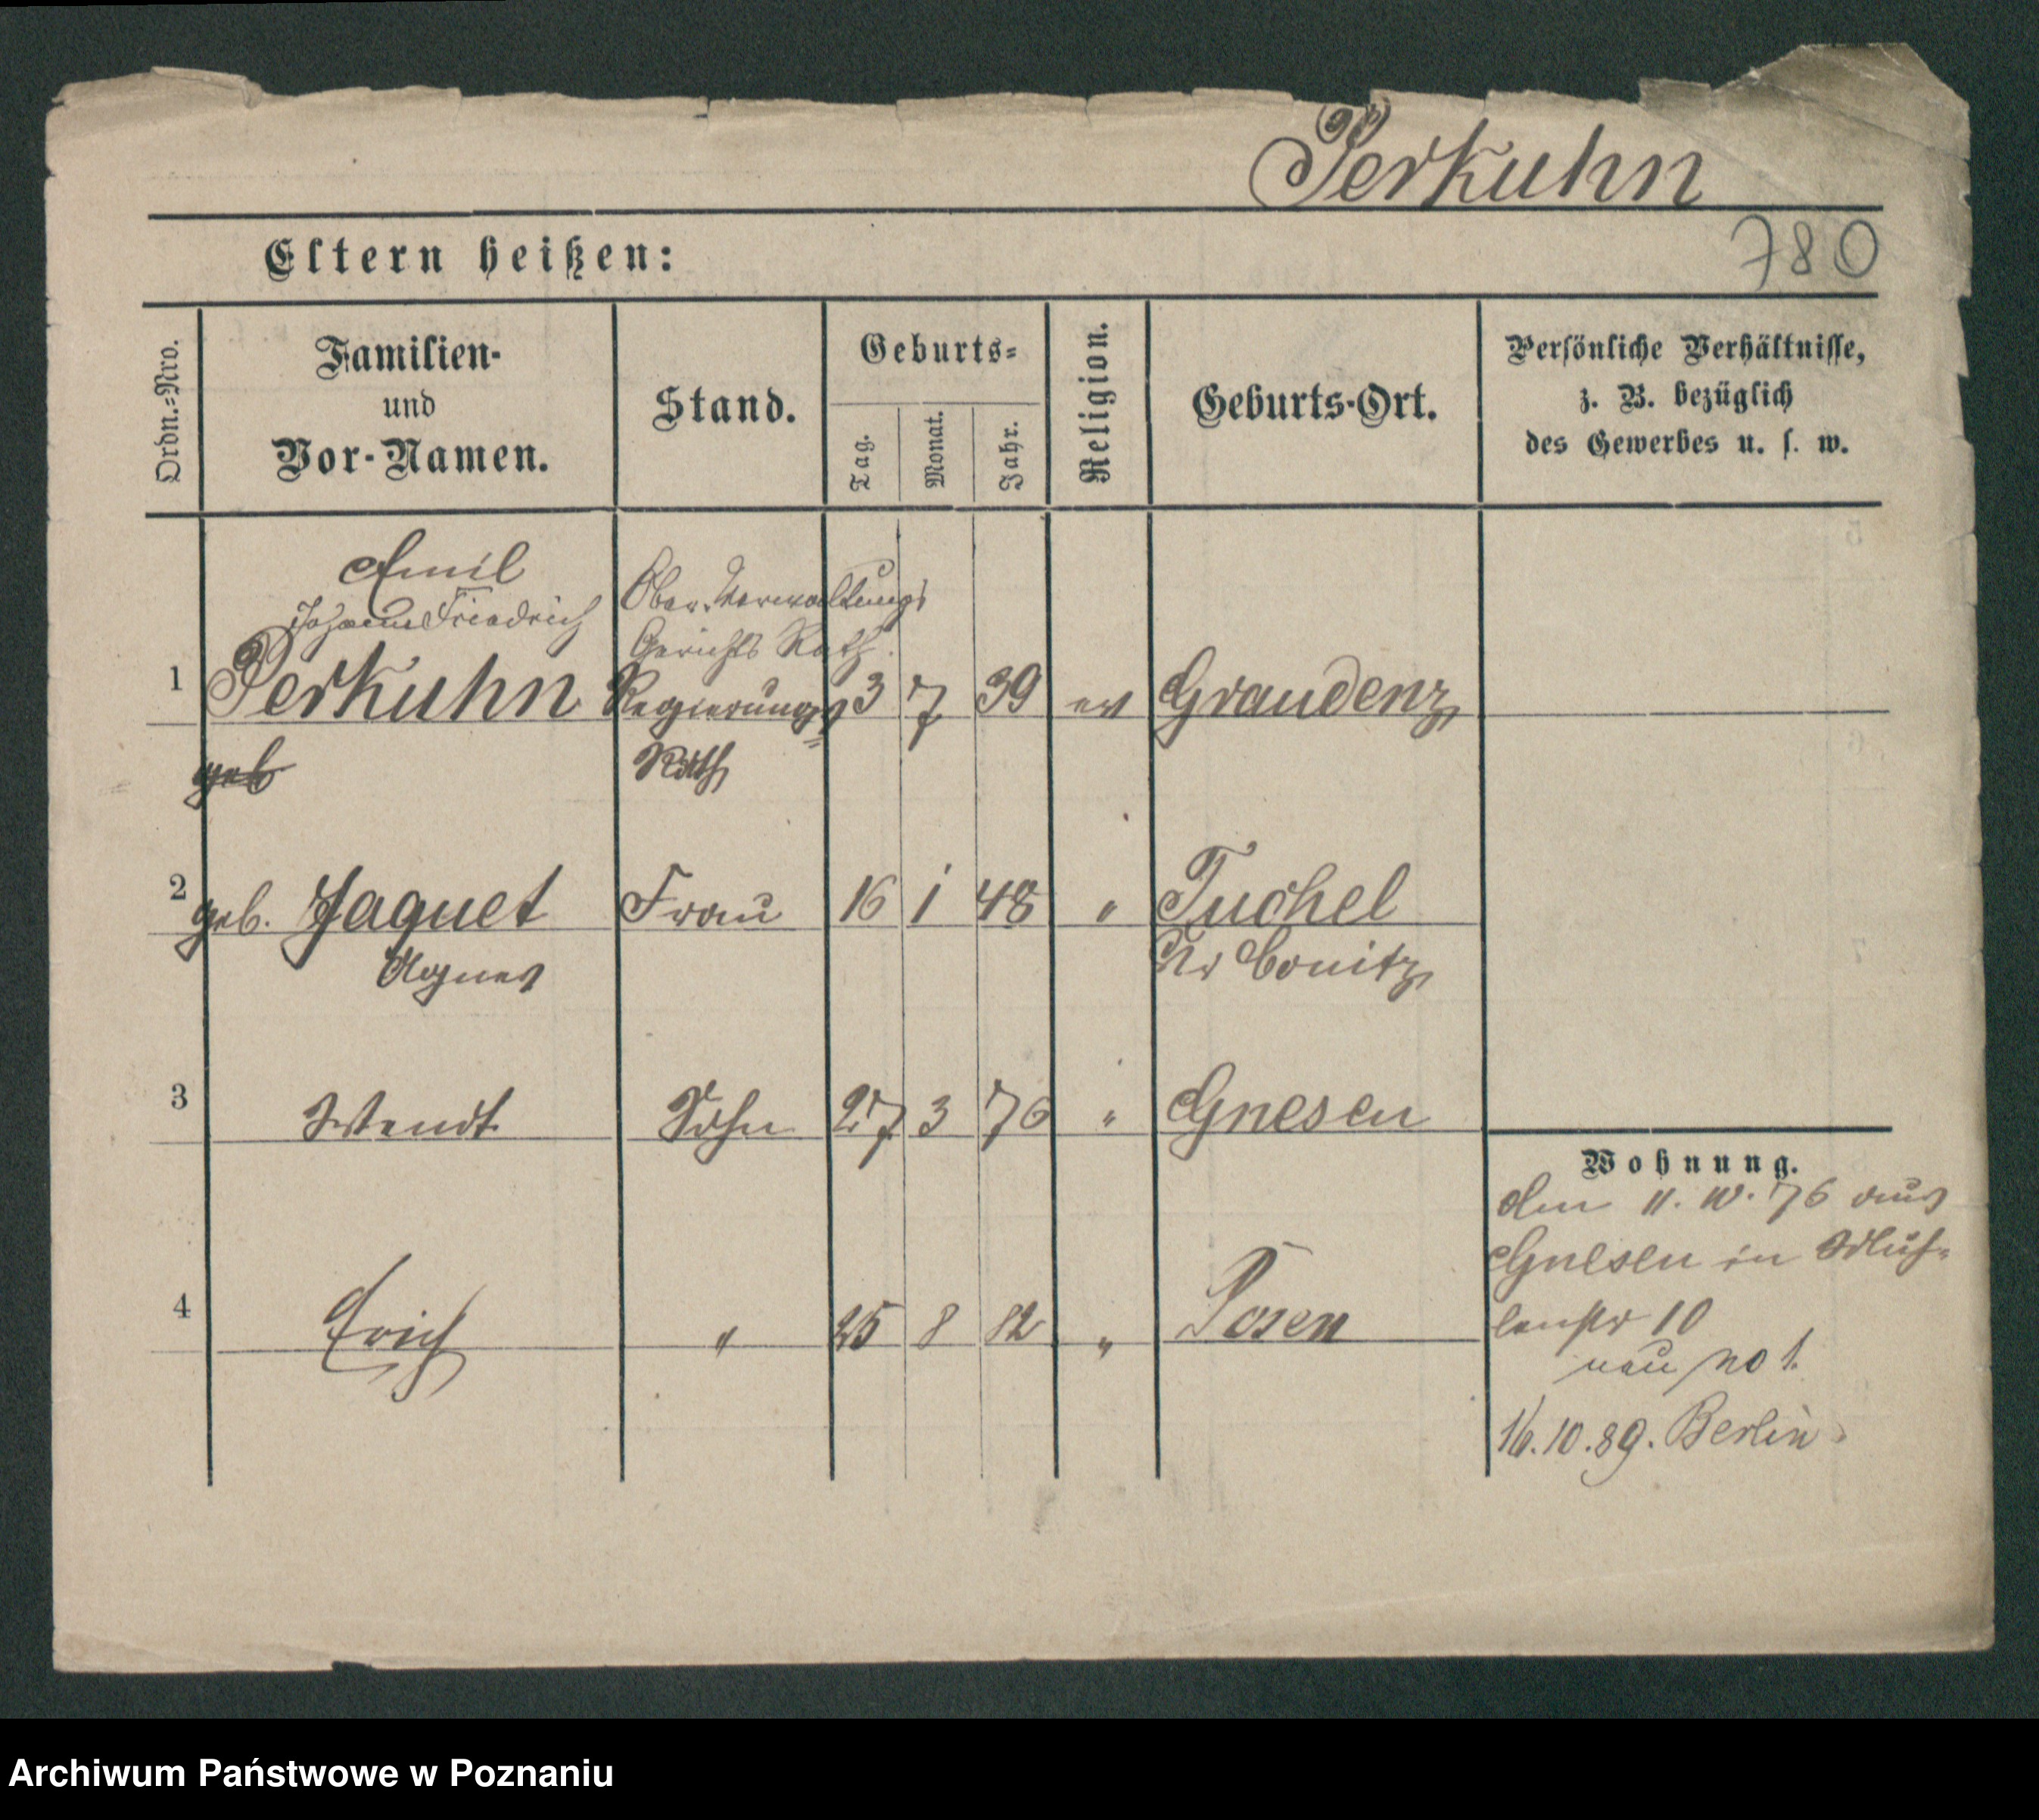 Perkuhn
780
Eltern heißen:
Ordn.=Nro.
Familien-
und
Vor-Namen.
Stand.
Geburts=
Tag.
Monat.
Jahr.
Religion.
Geburts-Ort.
Persönliche Verhältnisse,
z. B. bezüglich
des Gewerbes u. s. w.
Emil
Johann Friedrich
Ober. Verwaltungs
Gerichts Rath.
1 Perkuhn Regierungs= 3 7 39 ev Graudenz
geb
Rath
2 geb. Jaquet Frau 16 1 48 " Tuchel
Agnes Kr Conitz
3 Wendt Sohn 27 3 76 " Gnesen
Wohnung.
den 11. 10. 76 aus
Gnesen in Müh=
lenstr 10
neu no 1.
4 Erich " 25 8 82 " Posen
16.10.89. Berlin
Archiwum Państwowe w Poznaniu